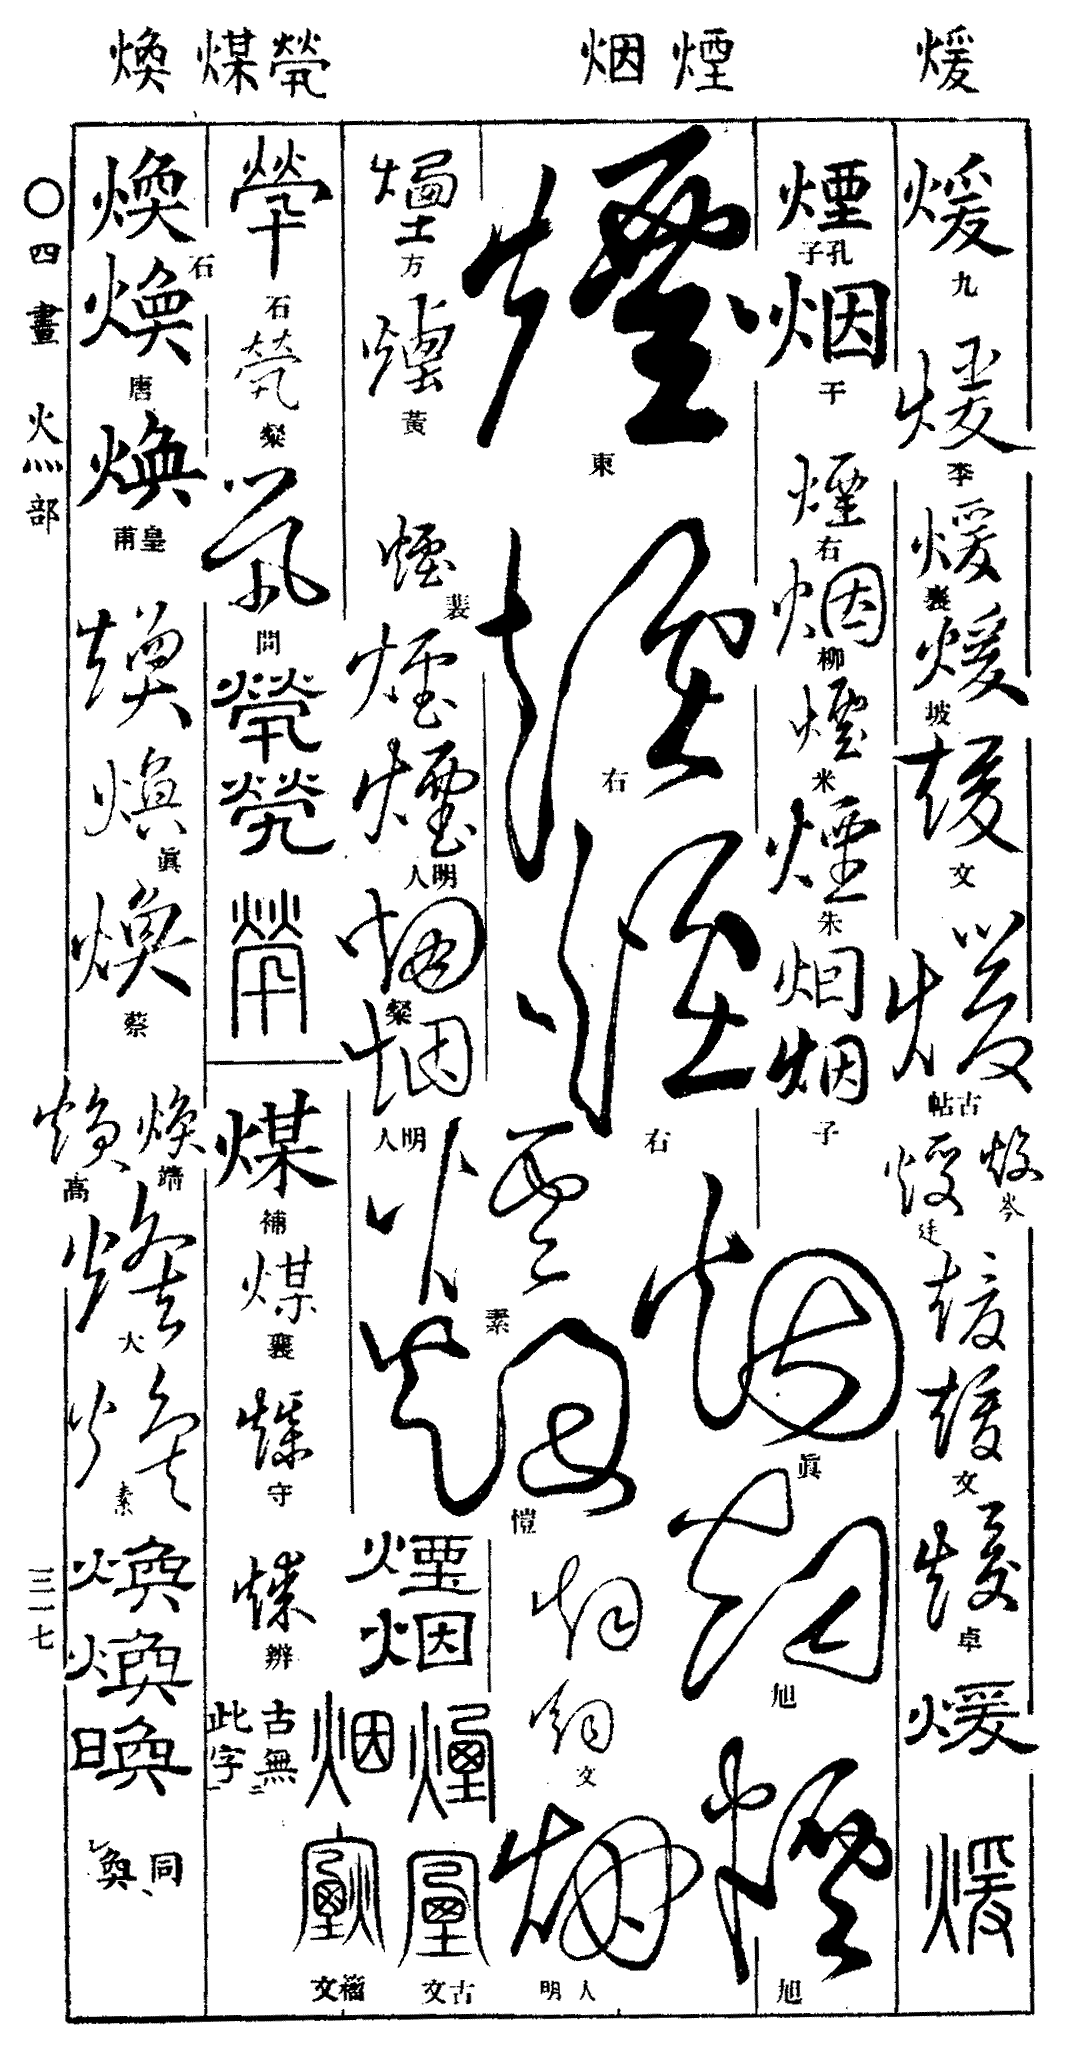 煖
煙 烟
煢 煤
煥
煖 九
煖 李
煖 襄
煖 坡
煖 文
煖 古帖
煖 岑
煖 廷
煖
煖 文
煖 卓
煖
煖
煙 孔子
烟 干
煙 右
烟 柳
煙 米
煙 朱
烟
烟 子
煙 東
煙 右
煙 右
烟 眞
烟 旭
煙 旭
煙 素
烟 愷
烟
烟 文
烟 明人
煙 方
煙 黃
煙 裴
煙
煙 明人
烟 粲
烟 明人
煙
烟
煙
烟
古文
籀文
煢 石
煢 粲
煢 問
煢
煢
煢
煤 補
煤 襄
煤 守
煤 辨
古無此字
煥 石
煥 唐
煥 皇甫
煥
煥 眞
煥 蔡
煥 靖
煥 高
煥 大
煥 素
煥
煥
奐 同
〇四畫 火灬部
三一七